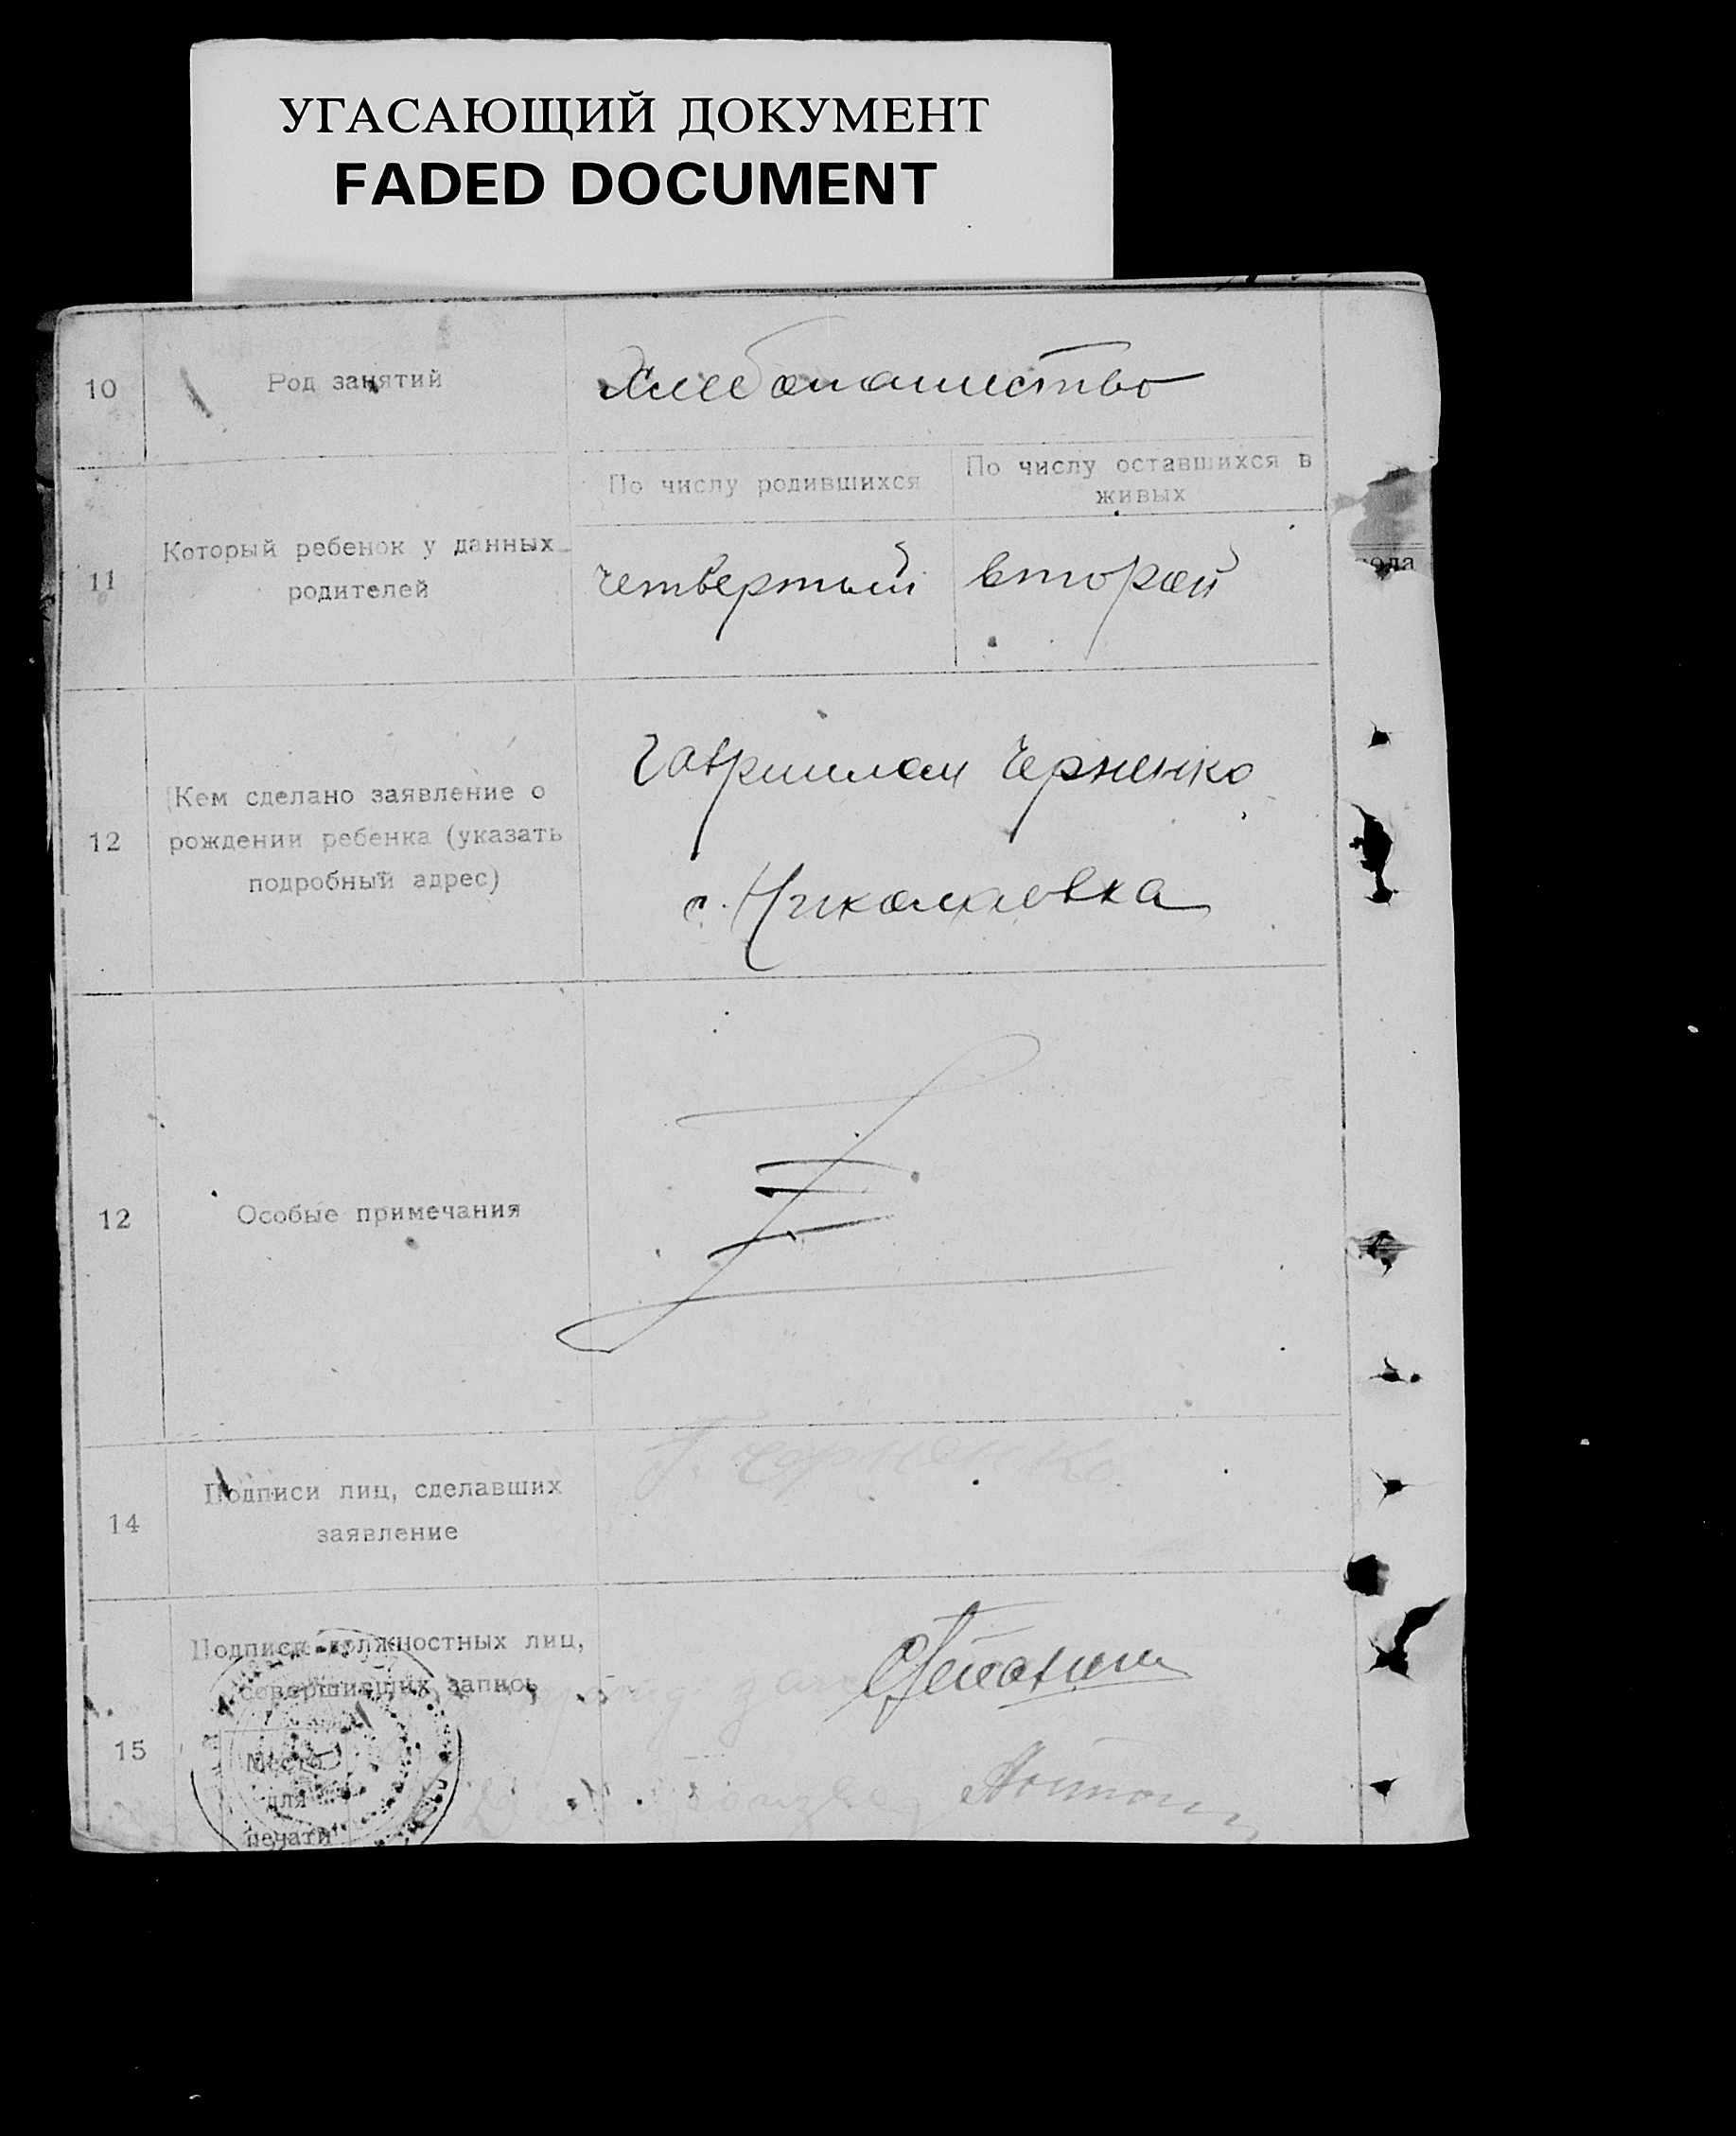 УГАСАЮЩИЙ ДОКУМЕНТ
FADED DOCUMENT
10
Род занятий
Хлебопашество
11
Который ребенок у данных
родителей
По числу родившихся
По числу оставшихся в
живых
четвертый
второй
12
(Кем сделано заявление о
рождении ребенка (указать
подробный адрес)
Гавриилом Черненко
с. Николаевка
12
Особые примечания
14
Подписи лиц, сделавших
заявление
Черненко
15
Подписи должностных лиц,
совершивших запись
Место
для
печати